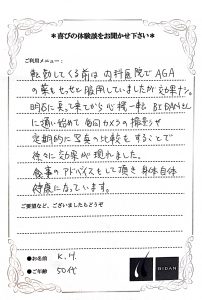 ＊喜びの体験談をお聞かせ下さい＊
ご利用メニュー：
転勤してくる前は内科医院でAGA
の薬をもらって服用していましたが効果ナシ。
明石に来て来てから心機一転 BIDANさん
に通い始めて 毎回カメラの撮影や
定期的に写真の比較をすることで
徐々に効果が現れました。
食事のアドバイスもして頂き 身体自体
健康になっています。
ご要望など、ございましたらどうぞ
●お名前 K.H
●ご年齢 50代
BIDAN